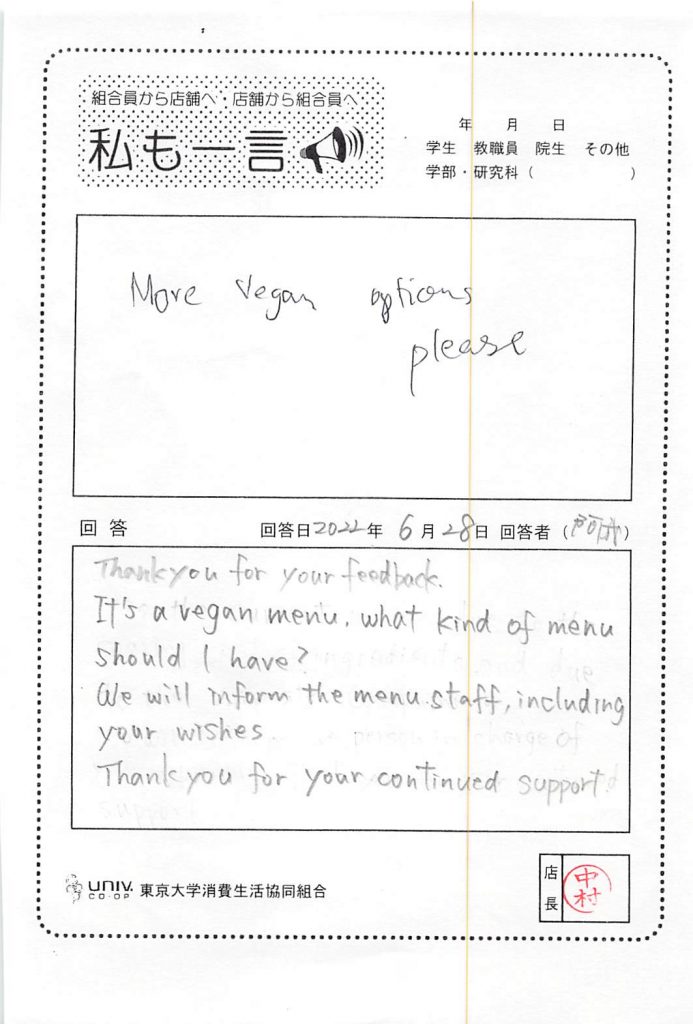 組合員から店舗へ・店舗から組合員へ
私も一言
年 月 日
学生 教職員 院生 その他
学部・研究科（ ）
More vegan options
please
回答 回答日2022年 6月28日 回答者（ ）
Thank you for your feedback.
It's a vegan menu, what kind of menu
should I have?
We will inform the menu staff, including
your wishes.
Thank you for your continued support.
店長
中村
UNIV. CO-OP 東京大学消費生活協同組合